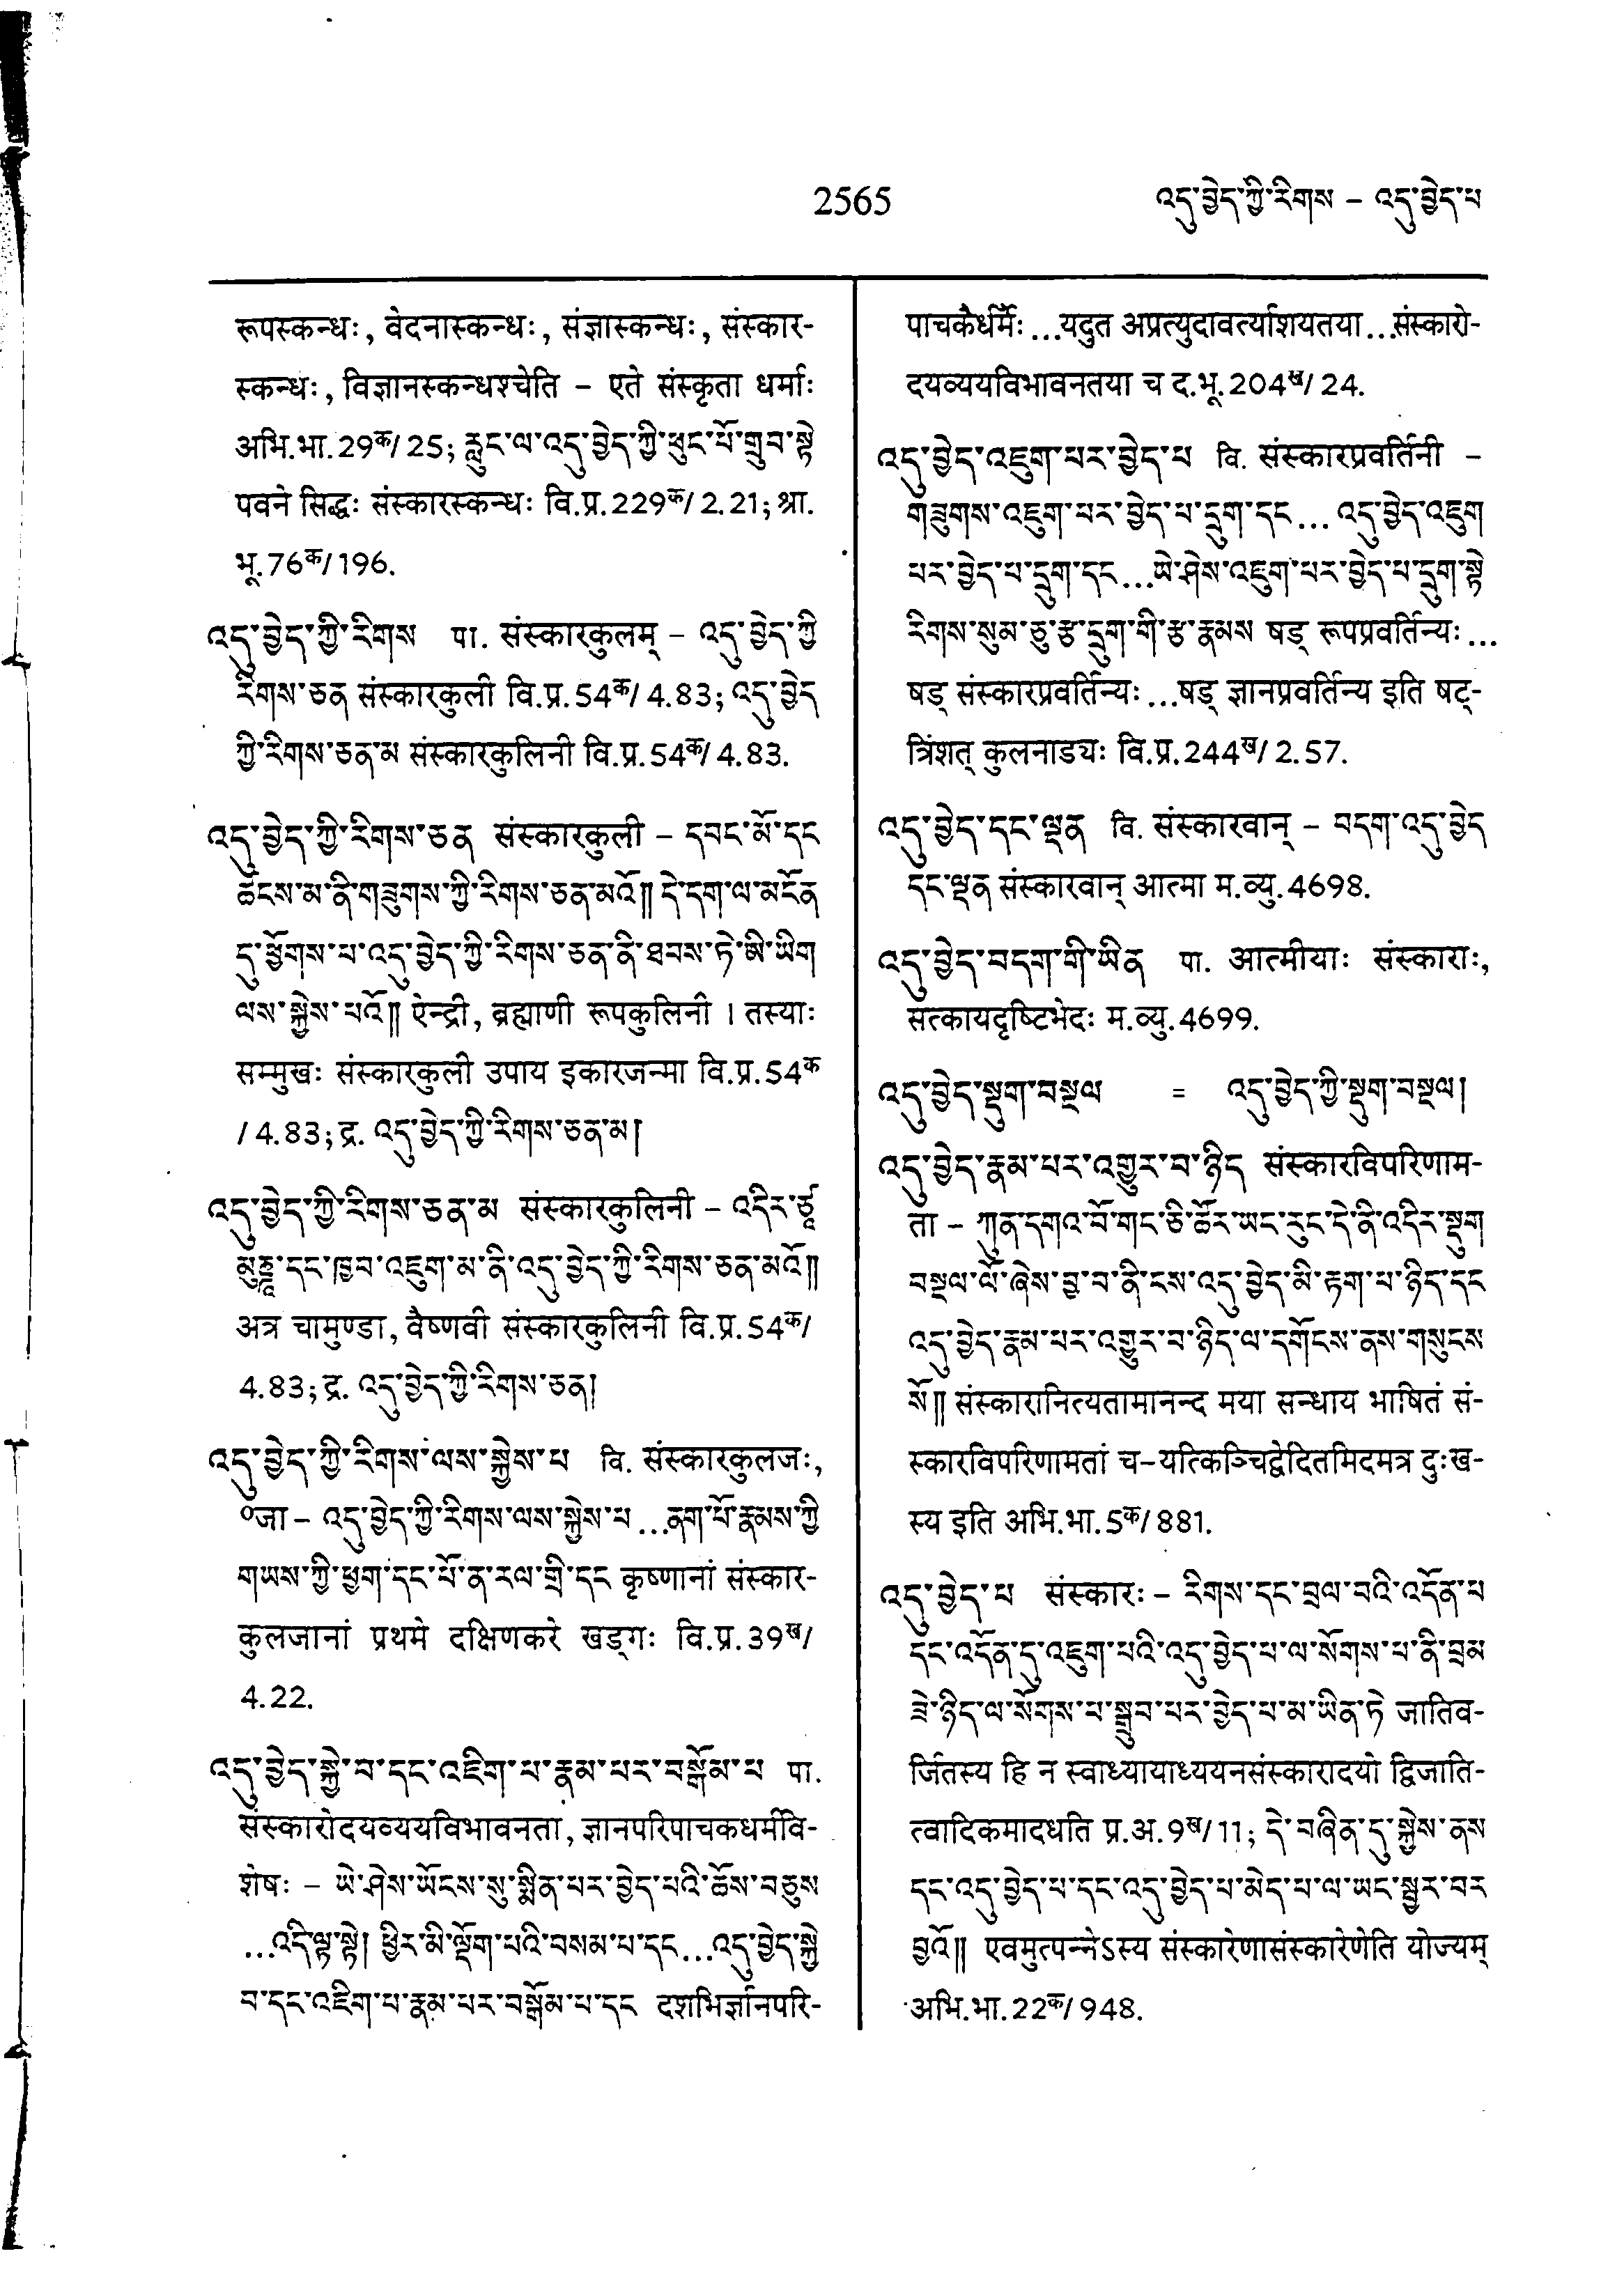 2565
འདུ་བྱེད་ཀྱི་རིགས – འདུ་བྱེད་པ
रूपस्कन्धः, वेदनास्कन्धः, संज्ञास्कन्धः, संस्कार-
स्कन्धः, विज्ञानस्कन्धश्चेति – एते संस्कृता धर्माः
अभि.भा.29क/25; རླུང་ལ་འདུ་བྱེད་ཀྱི་ཕུང་པོ་གྲུབ་སྟེ
पवने सिद्धः संस्कारस्कन्धः वि.प्र.229क/2.21; श्रा.
भू.76क/196.
འདུ་བྱེད་ཀྱི་རིགས पा. संस्कारकुलम् – འདུ་བྱེད་ཀྱི
རིགས་ཅན संस्कारकुली वि.प्र.54क/4.83; འདུ་བྱེད
ཀྱི་རིགས་ཅན་མ संस्कारकुलिनी वि.प्र.54क/4.83.
འདུ་བྱེད་ཀྱི་རིགས་ཅན संस्कारकुली – དབང་མོ་དང
ཚངས་མ་ནི་གཟུགས་ཀྱི་རིགས་ཅན་མའོ།། དེ་དག་ལ་མངོན
དུ་ཕྱོགས་པ་འདུ་བྱེད་ཀྱི་རིགས་ཅན་ནི་ཐབས་ཏེ་ཨི་ཡིག
ལས་སྐྱེས་པའོ།། ऐन्द्री, ब्रह्माणी रूपकुलिनी । तस्याः
सम्मुखः संस्कारकुली उपाय इकारजन्मा वि.प्र.54क
/4.83; द्र. འདུ་བྱེད་ཀྱི་རིགས་ཅན་མ།
འདུ་བྱེད་ཀྱི་རིགས་ཅན་མ संस्कारकुलिनी – འདིར་ཙཱ
མུཎྜཱ་དང་ཁྱབ་འཇུག་མ་ནི་འདུ་བྱེད་ཀྱི་རིགས་ཅན་མའོ།།
अत्र चामुण्डा, वैष्णवी संस्कारकुलिनी वि.प्र.54क/
4.83; द्र. འདུ་བྱེད་ཀྱི་རིགས་ཅན།
འདུ་བྱེད་ཀྱི་རིགས་ལས་སྐྱེས་པ वि. संस्कारकुलजः,
०जा – འདུ་བྱེད་ཀྱི་རིགས་ལས་སྐྱེས་པ...ནག་པོ་རྣམས་ཀྱི
གཡས་ཀྱི་ཕྱག་དང་པོ་ན་རལ་གྲི་དང कृष्णानां संस्कार-
कुलजानां प्रथमे दक्षिणकरे खड्गः वि.प्र.39ख/
4.22.
འདུ་བྱེད་སྐྱེ་བ་དང་འཇིག་པ་རྣམ་པར་བསྒོམ་པ पा.
संस्कारोदयव्ययविभावनता, ज्ञानपरिपाचकधर्मवि-
शेषः – ཡེ་ཤེས་ཡོངས་སུ་སྨིན་པར་བྱེད་པའི་ཆོས་བཅུས
...འདི་ལྟ་སྟེ། ཕྱིར་མི་ལྡོག་པའི་བསམ་པ་དང...འདུ་བྱེད་སྐྱེ
བ་དང་འཇིག་པ་རྣམ་པར་བསྒོམ་པ་དང दशभिर्ज्ञानपरि-
पाचकैर्धर्मैः...यदुत अप्रत्युदावर्त्याशयतया...संस्कारो-
दयव्ययविभावनतया च द.भू.204ख/24.
འདུ་བྱེད་འཇུག་པར་བྱེད་པ वि. संस्कारप्रवर्तिनी –
གཟུགས་འཇུག་པར་བྱེད་པ་དྲུག་དང... འདུ་བྱེད་འཇུག
པར་བྱེད་པ་དྲུག་དང...ཡེ་ཤེས་འཇུག་པར་བྱེད་པ་དྲུག་སྟེ
རིགས་སུམ་ཅུ་རྩ་དྲུག་གི་རྩ་རྣམས षड् रूपप्रवर्तिन्यः...
षड् संस्कारप्रवर्तिन्यः...षड् ज्ञानप्रवर्तिन्य इति षट्-
त्रिंशत् कुलनाड्यः वि.प्र.244ख/2.57.
འདུ་བྱེད་དང་ལྡན वि. संस्कारवान् – བདག་འདུ་བྱེད
དང་ལྡན संस्कारवान् आत्मा म.व्यु.4698.
འདུ་བྱེད་བདག་གི་ཡིན पा. आत्मीयाः संस्काराः,
सत्कायदृष्टिभेदः म.व्यु.4699.
འདུ་བྱེད་སྡུག་བསྔལ = འདུ་བྱེད་ཀྱི་སྡུག་བསྔལ།
འདུ་བྱེད་རྣམ་པར་འགྱུར་བ་ཉིད संस्कारविपरिणाम-
ता – ཀུན་དགའ་བོ་གང་ཅི་ཚོར་ཡང་རུང་དེ་ནི་འདིར་སྡུག
བསྔལ་ལོ་ཞེས་བྱ་བ་ནི་ངས་འདུ་བྱེད་མི་རྟག་པ་ཉིད་དང
འདུ་བྱེད་རྣམ་པར་འགྱུར་བ་ཉིད་ལ་དགོངས་ནས་གསུངས
སོ།། संस्कारानित्यतामानन्द मया सन्धाय भाषितं सं-
स्कारविपरिणामतां च–यत्किञ्चिद्वेदितमिदमत्र दुःख-
स्य इति अभि.भा.5क/881.
འདུ་བྱེད་པ संस्कारः – རིགས་དང་བྲལ་བའི་འདོན་པ
དང་འདོན་དུ་འཇུག་པའི་འདུ་བྱེད་པ་ལ་སོགས་པ་ནི་བྲམ
ཟེ་ཉིད་ལ་སོགས་པ་སྒྲུབ་པར་བྱེད་པ་མ་ཡིན་ཏེ जातिव-
र्जितस्य हि न स्वाध्यायाध्ययनसंस्कारादयो द्विजाति-
त्वादिकमादधति प्र.अ.9ख/11; དེ་བཞིན་དུ་སྐྱེས་ནས
དང་འདུ་བྱེད་པ་དང་འདུ་བྱེད་པ་མེད་པ་ལ་ཡང་སྦྱར་བར
བྱའོ།། एवमुत्पन्नेऽस्य संस्कारेणासंस्कारेणेति योज्यम्
अभि.भा.22क/948.